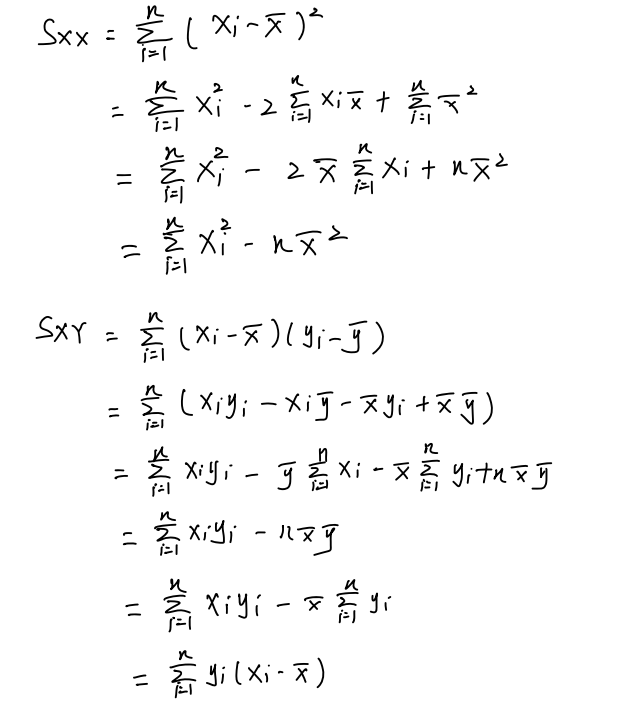 Sxx = \sum_{i=1}^{n} ( x_i - \overline{x} )^2
= \sum_{i=1}^{n} x_i^2 - 2 \sum_{i=1}^{n} x_i \overline{x} + \sum_{i=1}^{n} \overline{x}^2
= \sum_{i=1}^{n} x_i^2 - 2 \overline{x} \sum_{i=1}^{n} x_i + n \overline{x}^2
= \sum_{i=1}^{n} x_i^2 - n \overline{x}^2
SxY = \sum_{i=1}^{n} ( x_i - \overline{x} ) ( y_i - \overline{y} )
= \sum_{i=1}^{n} ( x_i y_i - x_i \overline{y} - \overline{x} y_i + \overline{x} \overline{y} )
= \sum_{i=1}^{n} x_i y_i - \overline{y} \sum_{i=1}^{n} x_i - \overline{x} \sum_{i=1}^{n} y_i + n \overline{x} \overline{y}
= \sum_{i=1}^{n} x_i y_i - n \overline{x} \overline{y}
= \sum_{i=1}^{n} x_i y_i - \overline{x} \sum_{i=1}^{n} y_i
= \sum_{i=1}^{n} y_i ( x_i - \overline{x} )